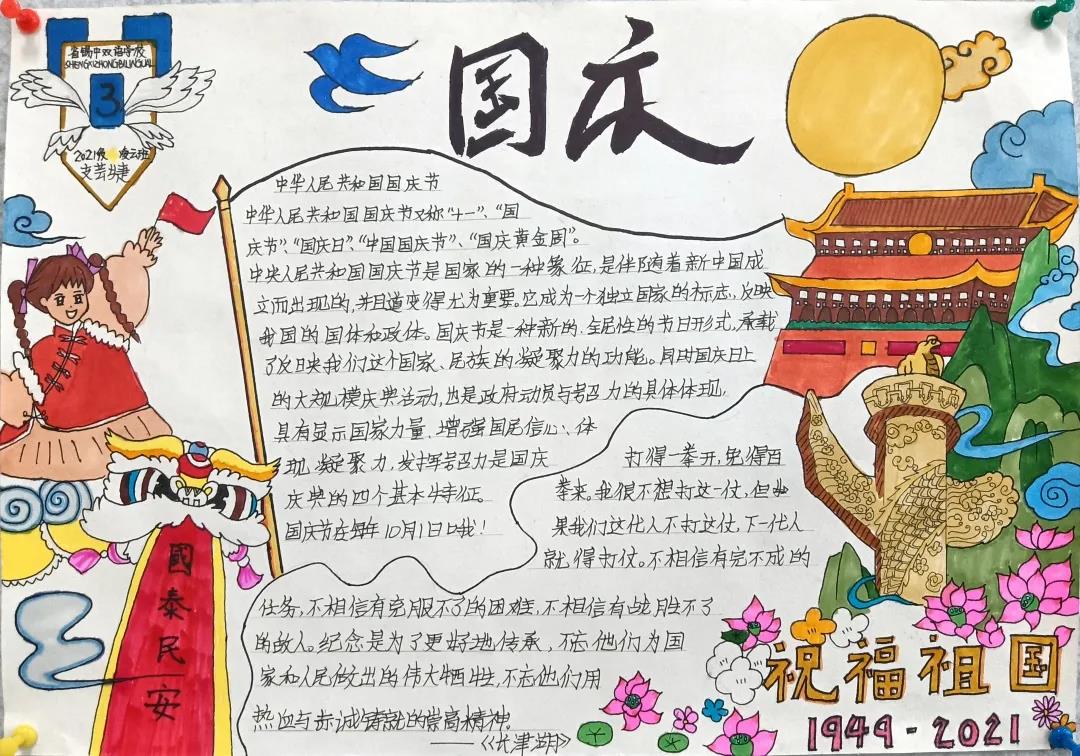 省锡中双语学校
SHENGXIZHONGBILINGUAL
3
2021级 凌云班
国庆
中华人民共和国国庆节
中华人民共和国国庆节又称“十一”、“国
庆节”、“国庆日”、“中国国庆节”、“国庆黄金周”。
中央人民共和国国庆节是国家的一种象征,是伴随着新中国成
立而出现的,并且道变得尤为重要。它成为一个独立国家的标志,反映
我国的国体和政体。国庆节是一种新的、全民性的节日形式,承载
了反映我们这个国家、民族的凝聚力的功能。同时国庆日上
的大规模庆典活动,也是政府动员与号召力的具体体现。
具有显示国家力量、增强国民信心、体
现凝聚力,发挥号召力是国庆
庆典的四个基本特征。
国庆节在每年10月1日哦!
打得一拳开,免得百
拳来。我很不想打这一仗,但如
果我们这代人不打这仗,下一代人
就得打仗。不相信有完不成的
任务,不相信有克服不了的困难,不相信有战胜不了
的敌人。纪念是为了更好地传承,不忘他们为国
家和人民做出的伟大牺牲,不忘他们用
热血与赤诚铸就的崇高精神。
——《长津湖》
國泰民安
祝福祖国
1949-2021